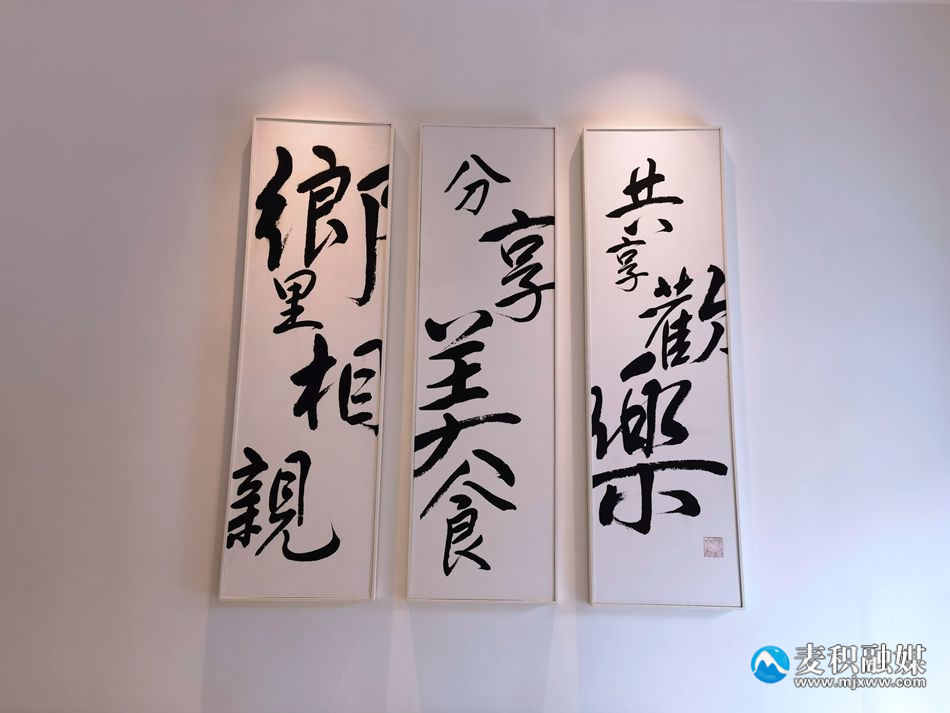 鄉里相親
分享美食
共享歡樂
麦积融媒
www.mjxww.com